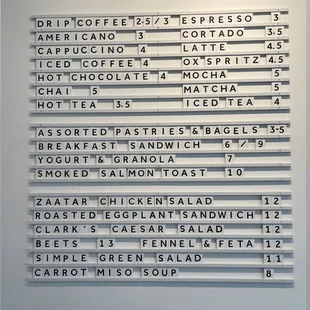 DRIP COFFEE 2.5/3 ESPRESSO 3
AMERICANO 3 CORTADO 3.5
CAPPUCCINO 4 LATTE 4.5
ICED COFFEE 4 OX SPRITZ 4.5
HOT CHOCOLATE 4 MOCHA 5
CHAI 5 MATCHA 5
HOT TEA 3.5 ICED TEA 4
ASSORTED PASTRIES & BAGELS 3-5
BREAKFAST SANDWICH 6 / 9
YOGURT & GRANOLA 7
SMOKED SALMON TOAST 10
ZAATAR CHICKEN SALAD 12
ROASTED EGGPLANT SANDWICH 12
CLARK'S CAESAR SALAD 12
BEETS 13 FENNEL & FETA 12
SIMPLE GREEN SALAD 11
CARROT MISO SOUP 8